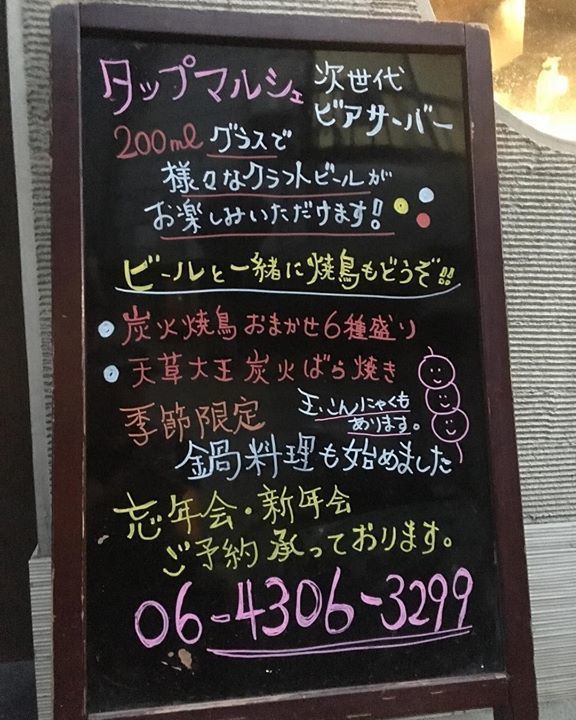 タップマルシェ 次世代
ビアサーバー
200ml グラスで
様々なクラフトビールが
お楽しみいただけます!
ビールと一緒に焼鳥もどうぞ!!
炭火焼鳥 おまかせ6種盛り
天草大王 炭火ばら焼き
季節限定
玉こんにゃくも
あります。
鍋料理も始めました
忘年会・新年会
ご予約承っております。
06-4306-3299